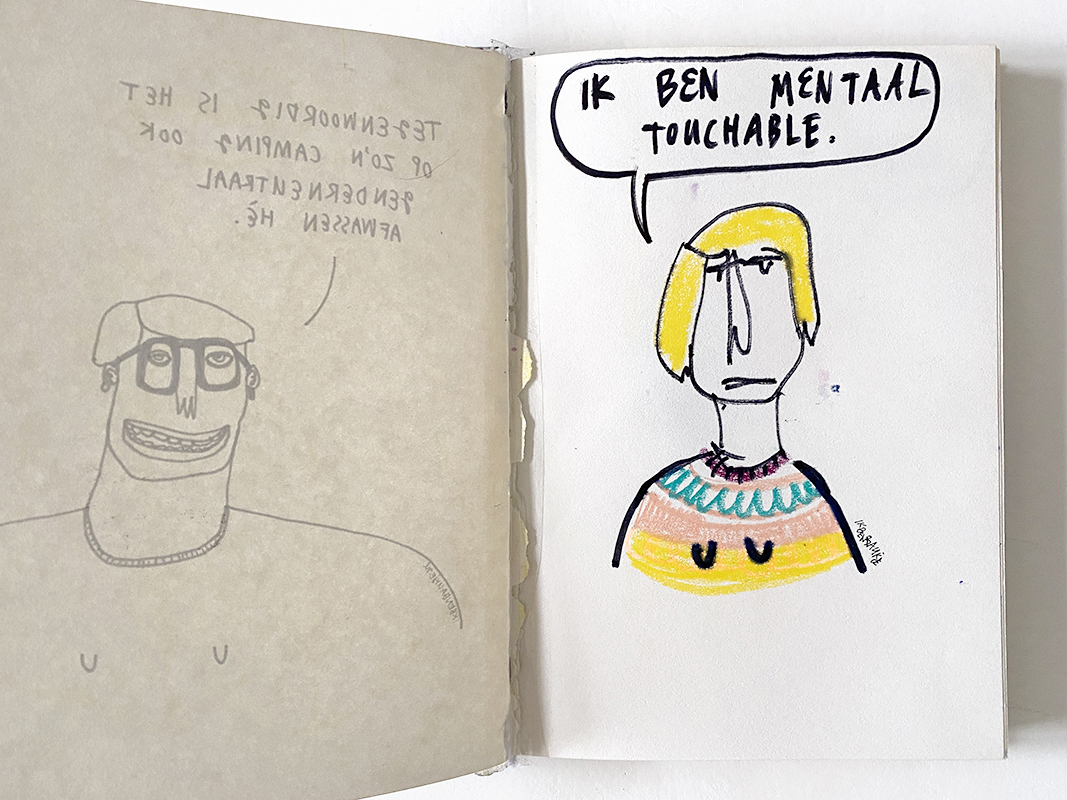 TEGENWOORDIG IS HET
OP ZO'N CAMPING OOK
GENDERNEUTRAAL
AFWASSEN HÈ.
IK BEN MENTAAL
TOUCHABLE.
IKBENBAUKJE